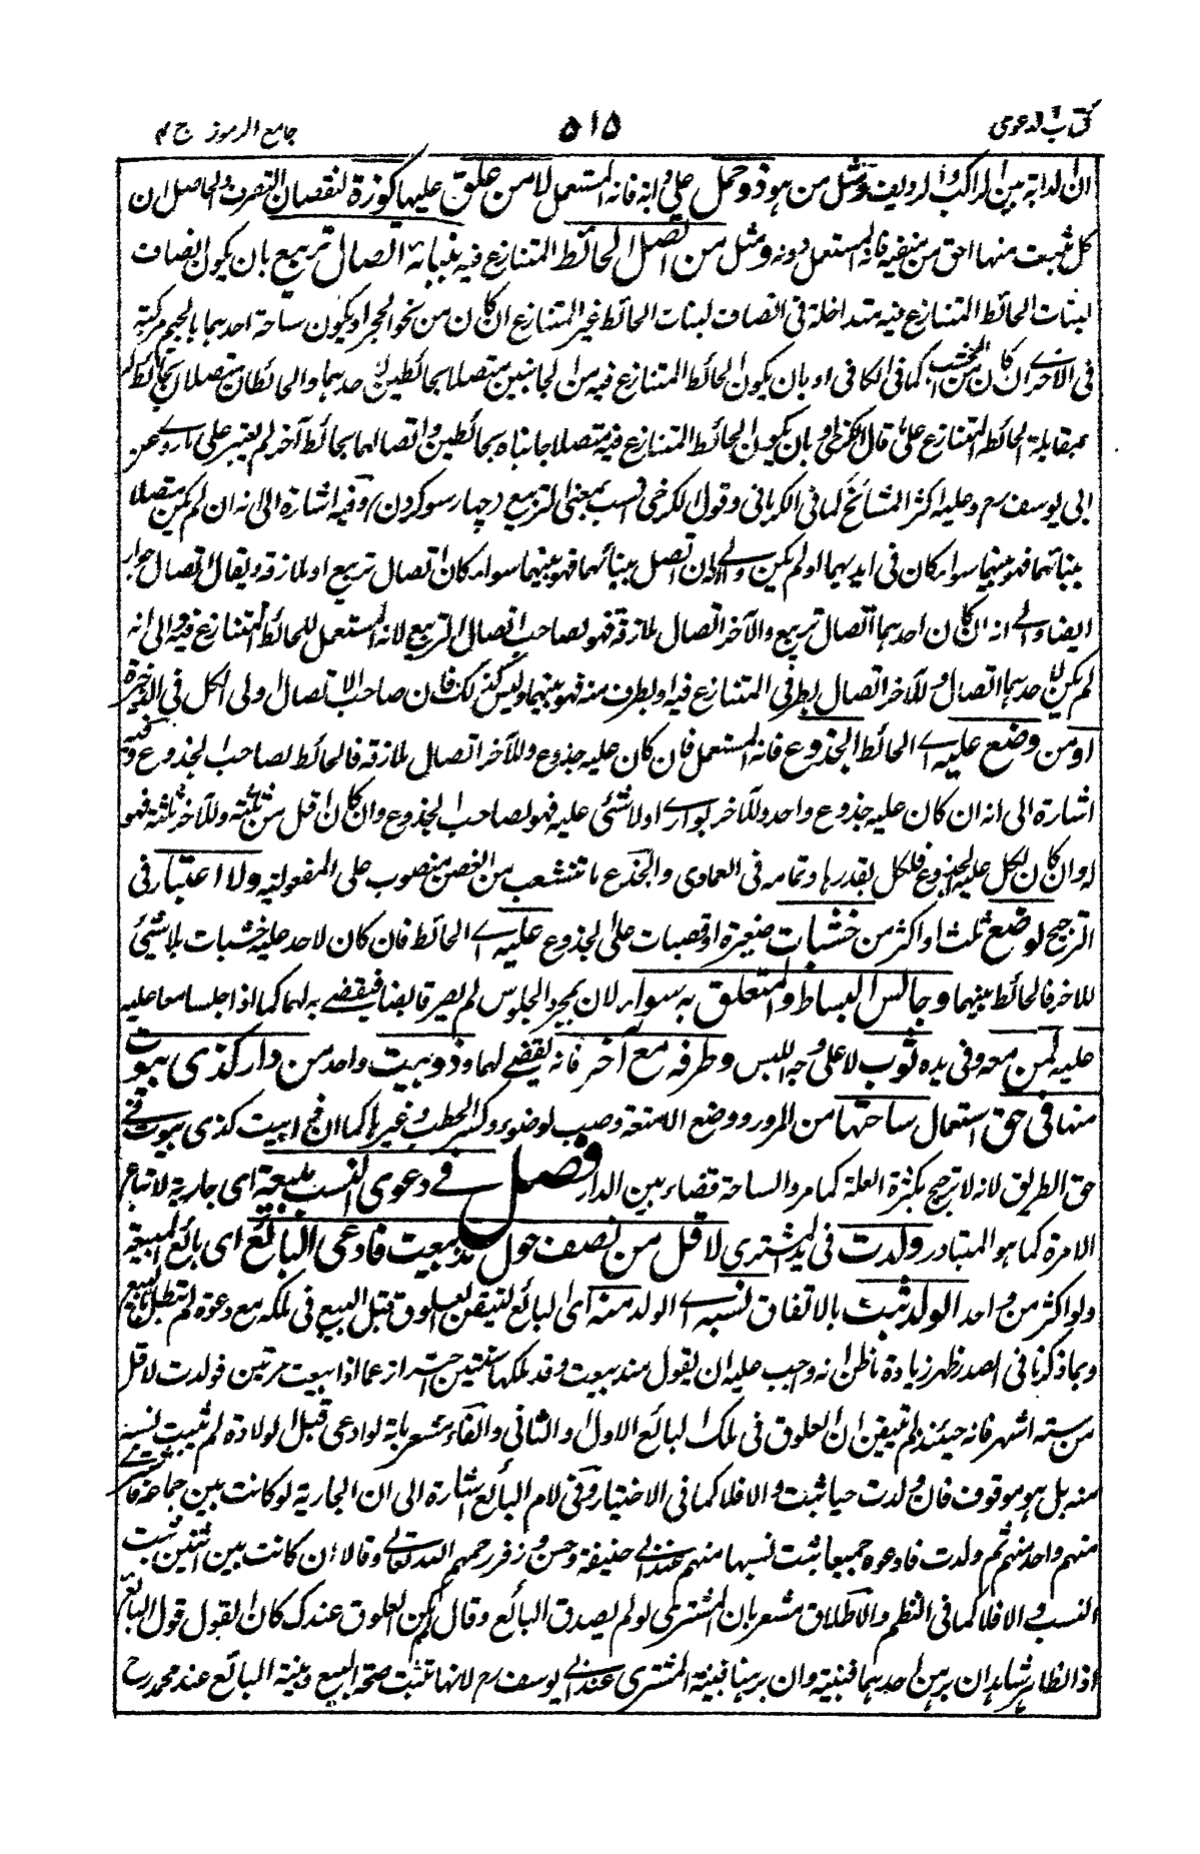 كتاب الدعوى
٥١٥
جامع الرموز ج ٣
ان الدابة بين الراكب والرديف ومثل من هو ذو حمل على دابة فانه المستعمل لا من علق عليها كوزة لنقصان التصرف والحاصل ان
كل مثبت منهما احق من منفيه فانه المستعمل دونه ومثل من اتصل الحائط المتنازع فيه ببنائه اتصال تربيع بان يكون انصاف
لبنات الحائط المتنازع فيه متداخلة فى انصاف لبنات الحائط غير المتنازع ان كان من نحو الحجر او يكون ساحة احدهما بالجيم مركبة
فى الاخرى ان كان من الخشب كما فى الكافى او بان يكون الحائط المتنازع فيه من الجانبين متصلا بحائطين لاحدهما والحائطان متصلان بحائط له
بمقابلة الحائط المتنازع على ما قال الكرخى او بان يكون الحائط المتنازع فيه متصلا جانباه بحائطين واتصالهما بحائط آخر لم يعتبر على ما روى عن
ابى يوسف رم وعليه اكثر المشائخ كما فى الكرمانى وقول الكرخى انسب بمعنى التربيع (چهار سو كردن) وفيه اشارة الى انه ان لم يكن متصلا
ببنائهما فهو بينهما سواء كان فى ايديهما او لم يكن والى انه ان اتصل ببنائهما فهو بينهما سواء كان اتصال تربيع او ملازقة ويقال اتصال جوار
ايضا والى انه ان كان لاحدهما اتصال تربيع والآخر اتصال ملازقة فهو لصاحب اتصال التربيع لانه المستعمل للحائط المتنازع فيه والى انه
لم يكن لاحدهما اتصال وللآخر اتصال بطرفى المتنازع فيه او بطرف منه فهو بينهما وليس كذلك فان صاحب الاتصال اولى الكل فى الذخيرة
او من وضع عليه اى الحائط الجذوع فانه المستعمل فان كان عليه جذوع وللآخر اتصال ملازقة فالحائط لصاحب الجذوع وفيه
اشارة الى انه ان كان عليه جذوع واحد وللآخر بوارى او لا شئ عليه فهو لصاحب الجذوع وان كان اقل من ثلثة وللآخر ثلثة فهو
له وان كان لكل عليه الجذوع فلكل بقدرها وتمامه فى العمادى والجذع ما تتشعب من الغصن منصوب على المفعولية ولا اعتبار فى
الترجيح لوضع ثلث او اكثر من خشبات صغيرة او قصبات على الجذوع عليه اى الحائط فان كان لاحد عليه خشبات بلا شئ
للاخر فالحائط بينهما وجالس البساط والمتعلق به سواء لان بمجرد الجلوس لم يصر قابضا فيقضى به لهما كما اذا جلسا معا عليه
عليه كمن معه وفى يده ثوب لا على وجه اللبس وطرفه مع آخر فانه يقضى لهما وذو بيت واحد من دار كذى بيوت
منها فى حق استعمال ساحتها من المرور ووضع الامتعة وصب الوضوء وكسر الحطب وغيرها كما ان فى ابيت كذى بيوت فى
حق الطريق لانه لا ترجيح بكثرة العلة كما مر والساحة فضاء بين الدار فصل فى دعوى النسب مبيعة اى جارية لا تباع
الامرة كما هو المتبادر ولدت فى يد المشترى لاقل من نصف حول منذ بيعت فادعى البائع اى بائع المبيعة
ولو اكثر من واحد الولد ثبت بالاتفاق نسبه اى الولد منه اى البائع لتيقن العلوق قبل البيع فى ملكه مع دعوة لم تبطل بالبيع
وبما ذكرنا فى الصدر ظهر زيادة ما ظن انه وجب عليه ان يقول منذ بيعت وقد ملكها سنتين احترازا عما اذا بيعت مرتين فولدت لاقل
من ستة اشهر فانه حينئذ لم يتيقن ان العلوق فى ملك البائع الاول والثانى والفاء مشعر بانه لو ادعى قبل الولادة لم يثبت نسبه
منه بل هو موقوف فان ولدت حيا ثبت والا فلا كما فى الاختيار وفى لام البائع اشارة الى ان الجارية لو كانت بين جماعة فاشترى
منهم واحد منهم ثم ولدت فادعوه جميعا ثبت نسبها منهم عند ابى حنيفة وحسن وزفر رحمهم الله تعالى وقالا ان كانت بين اثنين ثبت
النسب والا فلا كما فى النظم والاطلاق مشعر بان المشترى لو لم يصدق البائع وقال لم يكن العلوق عندك كان القول قول البائع
اذ الظاهر شاهد ان برهن احدهما فبينته وان برهنا فبينة المشترى عند ابى يوسف رم لانها تثبت صحة البيع وبينة البائع عند محمد رح